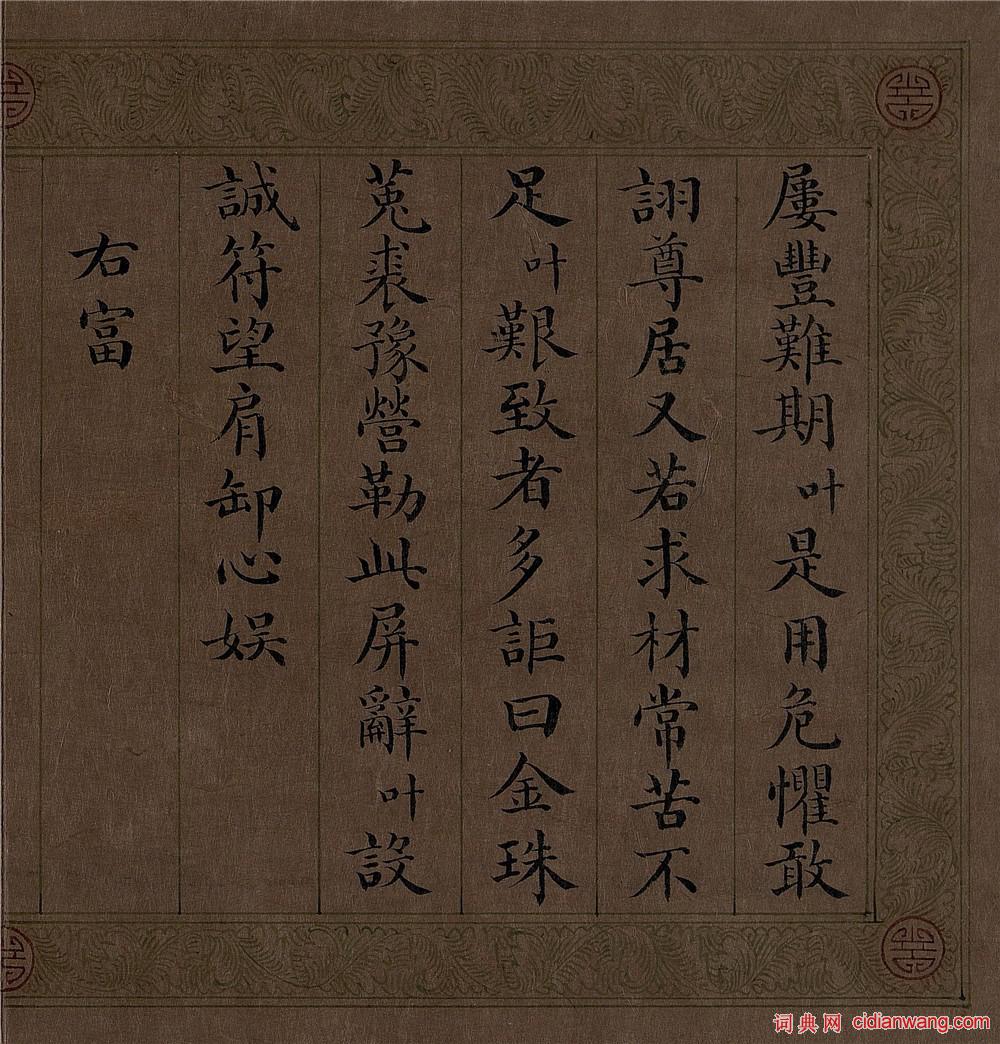 屢豐難期叶是用危懼敢
詡尊居又若求材常苦不
足叶艱致者多詎曰金珠
菟裘豫營勒此屏辭叶設
誠符望肩卸心娱
右富
词典网 cidianwang.com